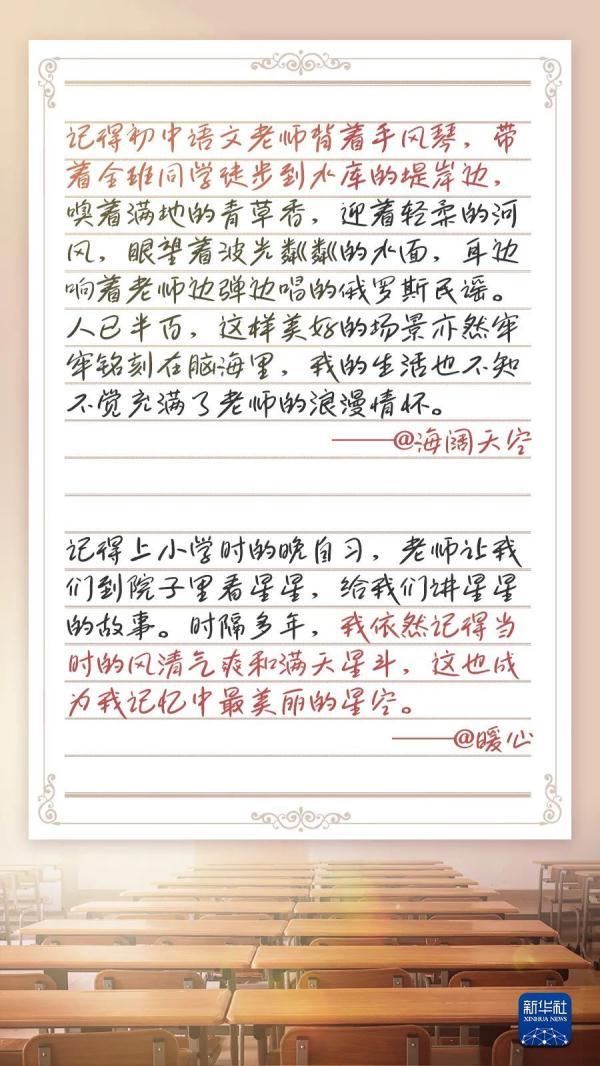 记得初中语文老师背着手风琴，带
着全班同学徒步到水库的堤岸边，
嗅着满地的青草香，迎着轻柔的河
风，眼望着波光粼粼的水面，耳边
响着老师边弹边唱的俄罗斯民谣。
人已半百，这样美好的场景亦然牢
牢铭刻在脑海里，我的生活也不知
不觉充满了老师的浪漫情怀。
——@海阔天空
记得上小学时的晚自习，老师让我
们到院子里看星星，给我们讲星星
的故事。时隔多年，我依然记得当
时的风清气爽和满天星斗，这也成
为我记忆中最美丽的星空。
——@暖心
新华社
XINHUA NEWS